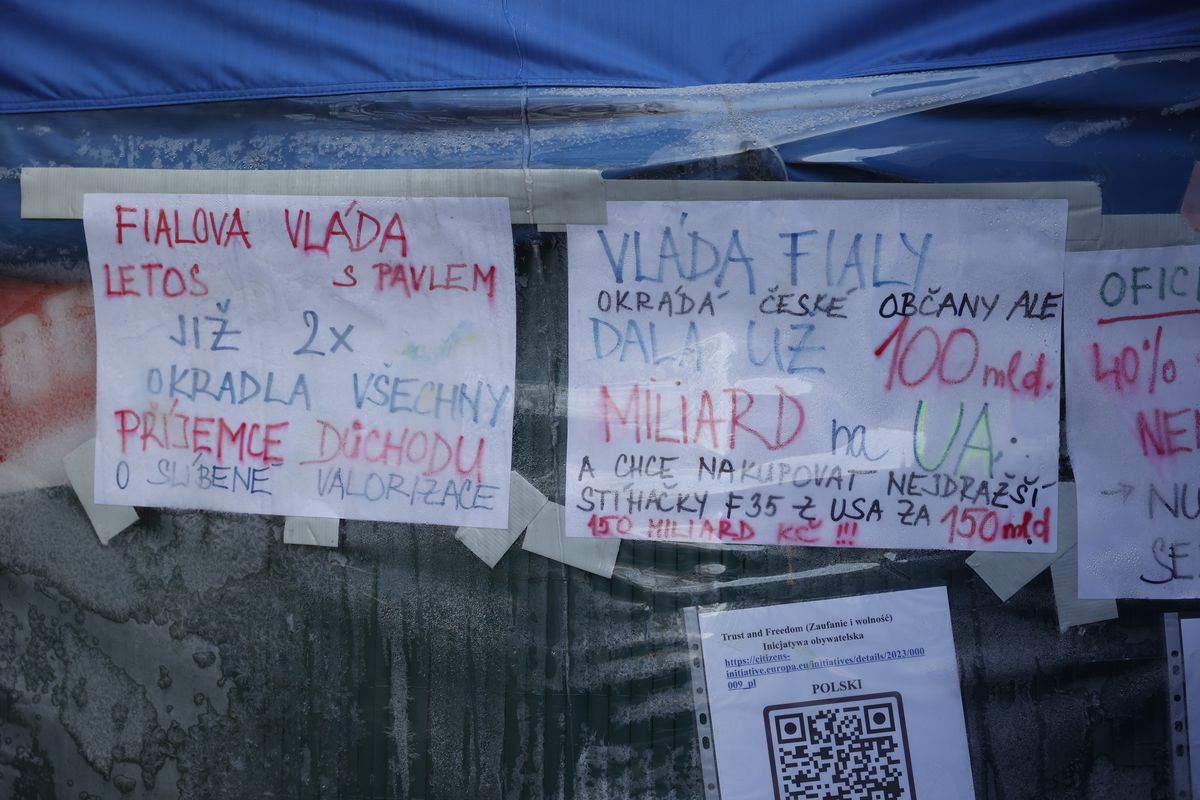 FIALOVA VLÁDA
LETOS S PAVLEM
JIŽ 2x
OKRADLA VŠECHNY
PŘÍJEMCE DŮCHODU
O SLÍBENÉ VALORIZACE
VLÁDA FIALY
OKRÁDÁ ČESKÉ OBČANY ALE
DALA UŽ 100 mld.
MILIARD na UA.
A CHCE NAKUPOVAT NEJDRAŽŠÍ
STÍHAČKY F35 Z USA ZA 150 mld
150 MILIARD KČ !!!
OFIC
40%
NE
→ NU
SE
Trust and Freedom (Zaufanie i wolność)
Inicjatywa obywatelska
https://citizens-
initiative.europa.eu/initiatives/details/2023/000
009_pl
POLSKI